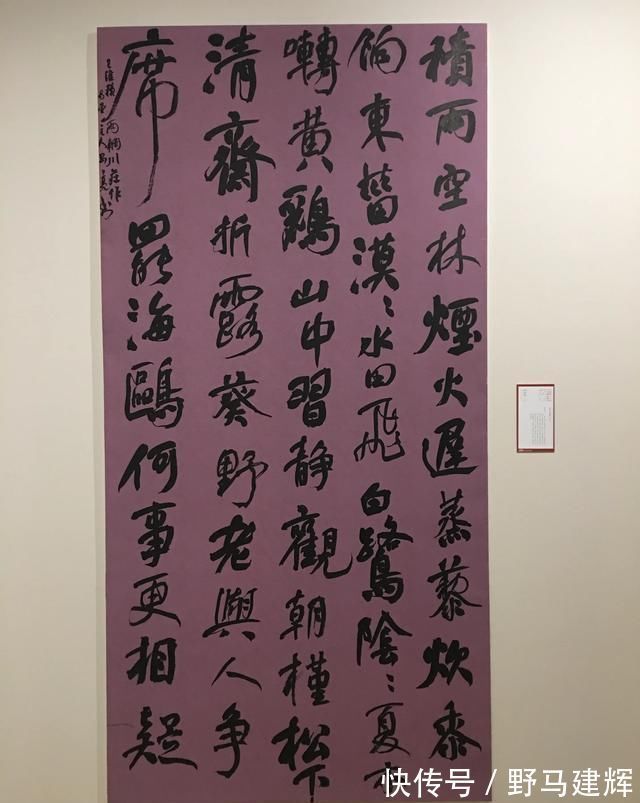 積雨空林煙火遲蒸藜炊黍
餉東菑漠〻水田飛白鷺陰〻夏木
囀黄鸝山中習静觀朝槿松下
清齋折露葵野老與人争
席罷海鷗何事更相疑
王維積雨輞川莊作
快传号 / 野马建辉